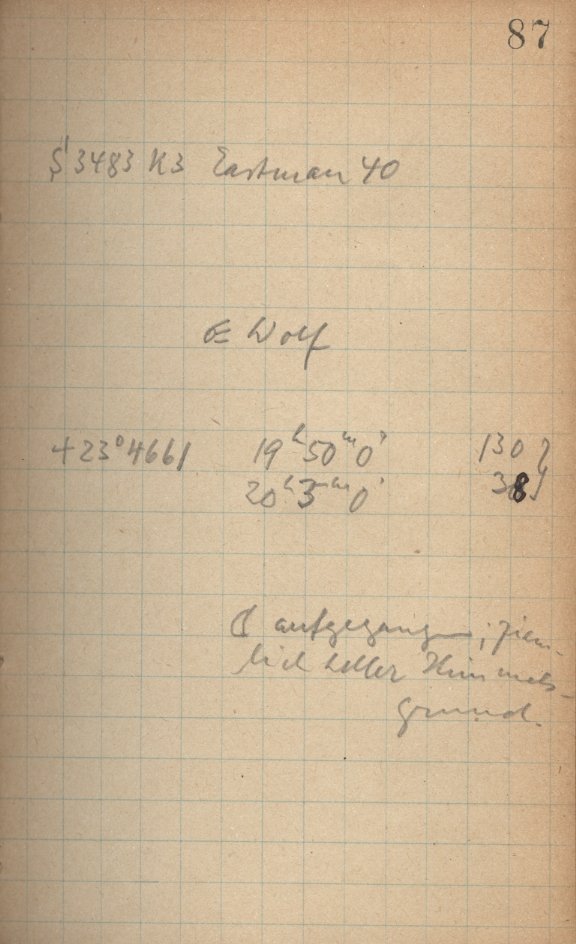 87
S 3483 K3 Eastman 40
E Wolf
+23°4661 19ʰ50ᵐ0ˢ 130
20ʰ5ᵐ0ˢ 38
☾ aufgegangen; ziem-
lich heller Himmels-
grund.